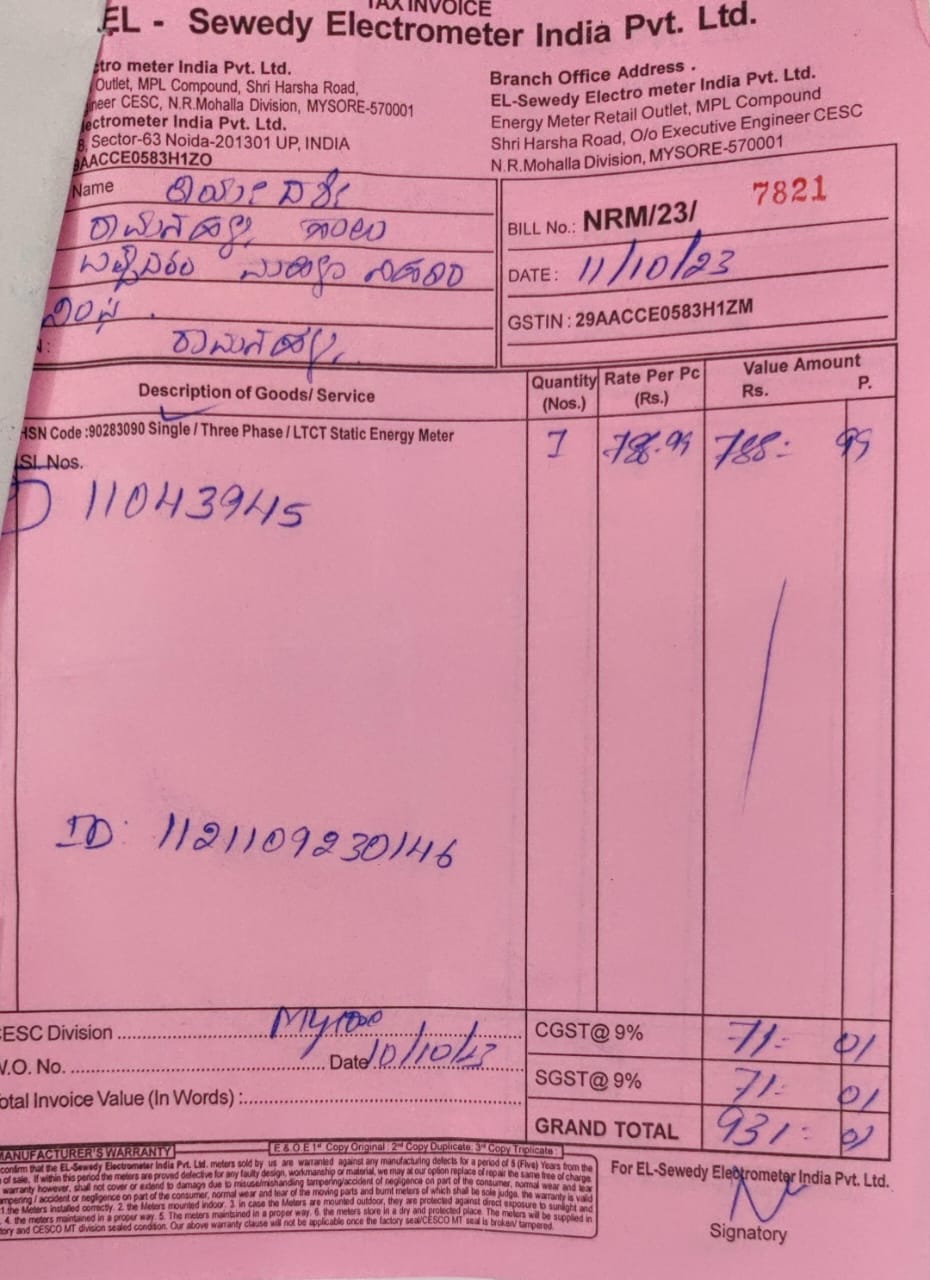 TAX INVOICE
EL - Sewedy Electrometer India Pvt. Ltd.
tro meter India Pvt. Ltd.
Outlet, MPL Compound, Shri Harsha Road,
neer CESC, N.R.Mohalla Division, MYSORE-570001
ectrometer India Pvt. Ltd.
Sector-63 Noida-201301 UP, INDIA
9AACCE0583H1ZO
Branch Office Address .
EL-Sewedy Electro meter India Pvt. Ltd.
Energy Meter Retail Outlet, MPL Compound
Shri Harsha Road, O/o Executive Engineer CESC
N.R.Mohalla Division, MYSORE-570001
Name
BILL No.: NRM/23/ 7821
DATE : 11/10/23
GSTIN : 29AACCE0583H1ZM
Description of Goods/ Service
Quantity (Nos.)
Rate Per Pc (Rs.)
Value Amount
Rs. P.
HSN Code :90283090 Single / Three Phase / LTCT Static Energy Meter
1 788.99 788= 99
SI. Nos.
11043945
ID: 1121109230146
CESC Division
V.O. No. Date 10/10/23
otal Invoice Value (In Words) :
CGST@ 9% 71= 01
SGST@ 9% 71= 01
GRAND TOTAL 931= 01
MANUFACTURER'S WARRANTY
E & O E 1st Copy Original : 2nd Copy Duplicate: 3rd Copy Triplicate :
confirm that the EL-Sewedy Electrometer India Pvt. Ltd. meters sold by us are warranted against any manufacturing defects for a period of 5 (Five) Years from the
of sale, If within this period the meters are proved defective for any faulty design, workmanship or material, we may at our option replace of repair the same free of charge.
warranty however, shall not cover or extend to damage due to misuse/mishandling tampering/accident of negligence on part of the consumer, normal wear and tear
mpering / accident or negligence on part of the consumer, normal wear and tear of the moving parts and burnt meters of which shall be sole judge. the warranty is valid
1.the Meters installed correctly. 2. the Meters mounted indoor. 3. in case the Meters are mounted outdoor, they are protected against direct exposure to sunlight and
4. the meters maintained in a proper way. 5. The meters maintained in a proper way. 6. the meters store in a dry and protected place. The meters will be supplied in
tory and CESCO MT division sealed condition. Our above warranty clause will not be applicable once the factory seal/CESCO MT seal is broken/ tampered.
For EL-Sewedy Electrometer India Pvt. Ltd.
Signatory